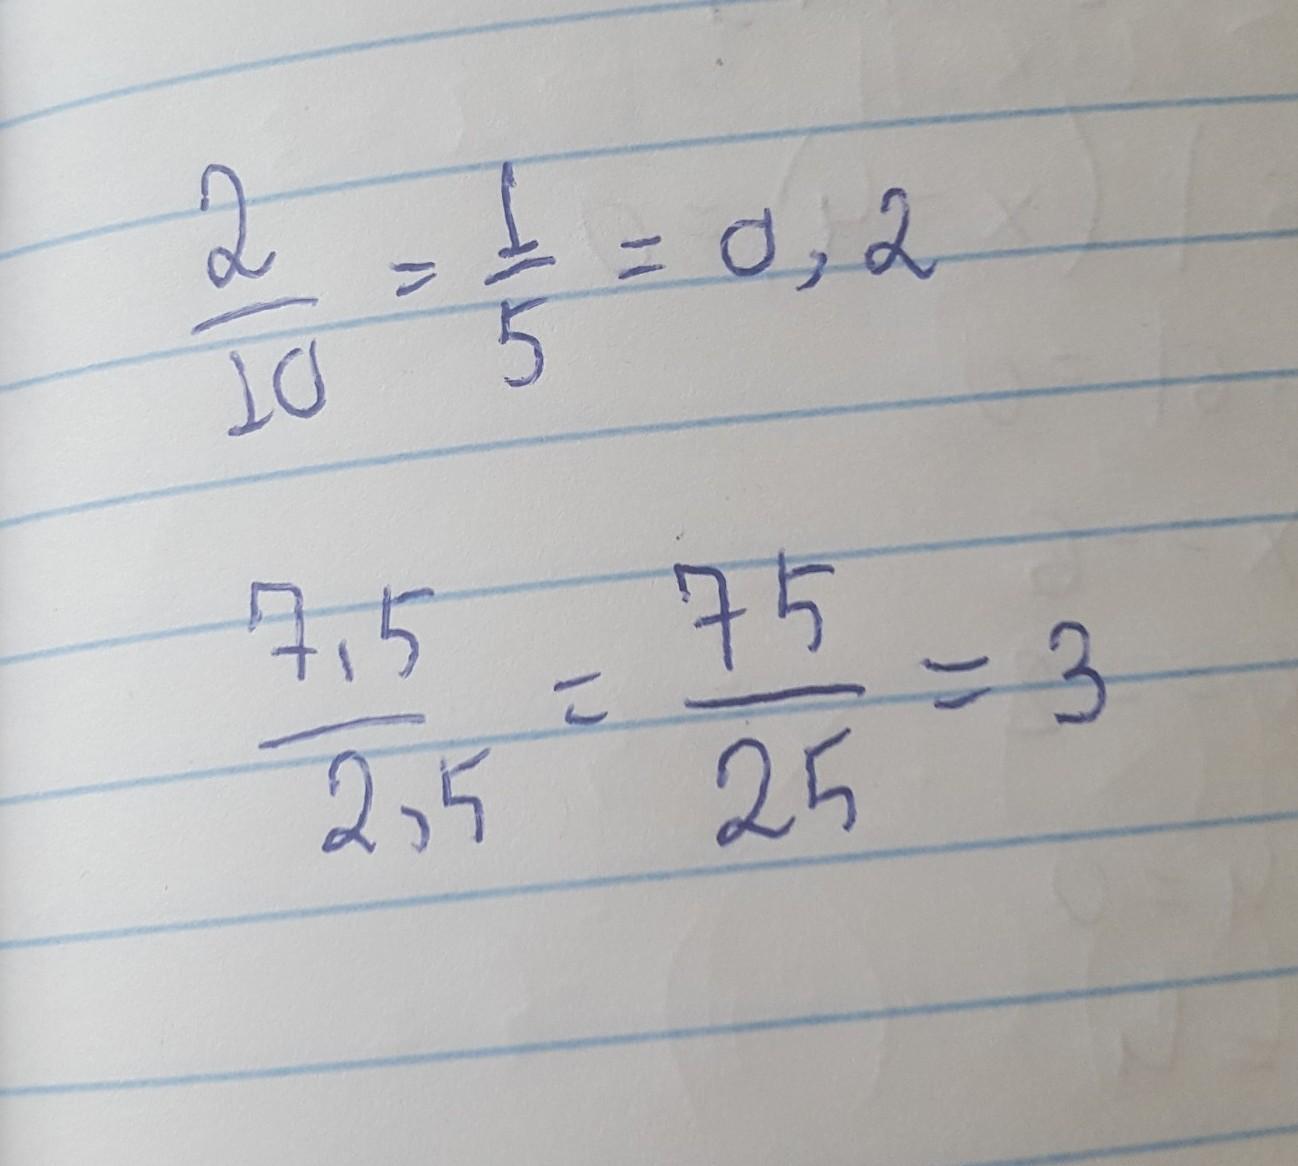 2/10 = 1/5 = 0,2
7,5/2,5 = 75/25 = 3